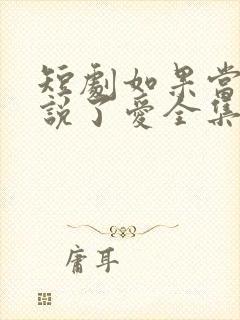 短劇如果當
說了愛全集
庸耳